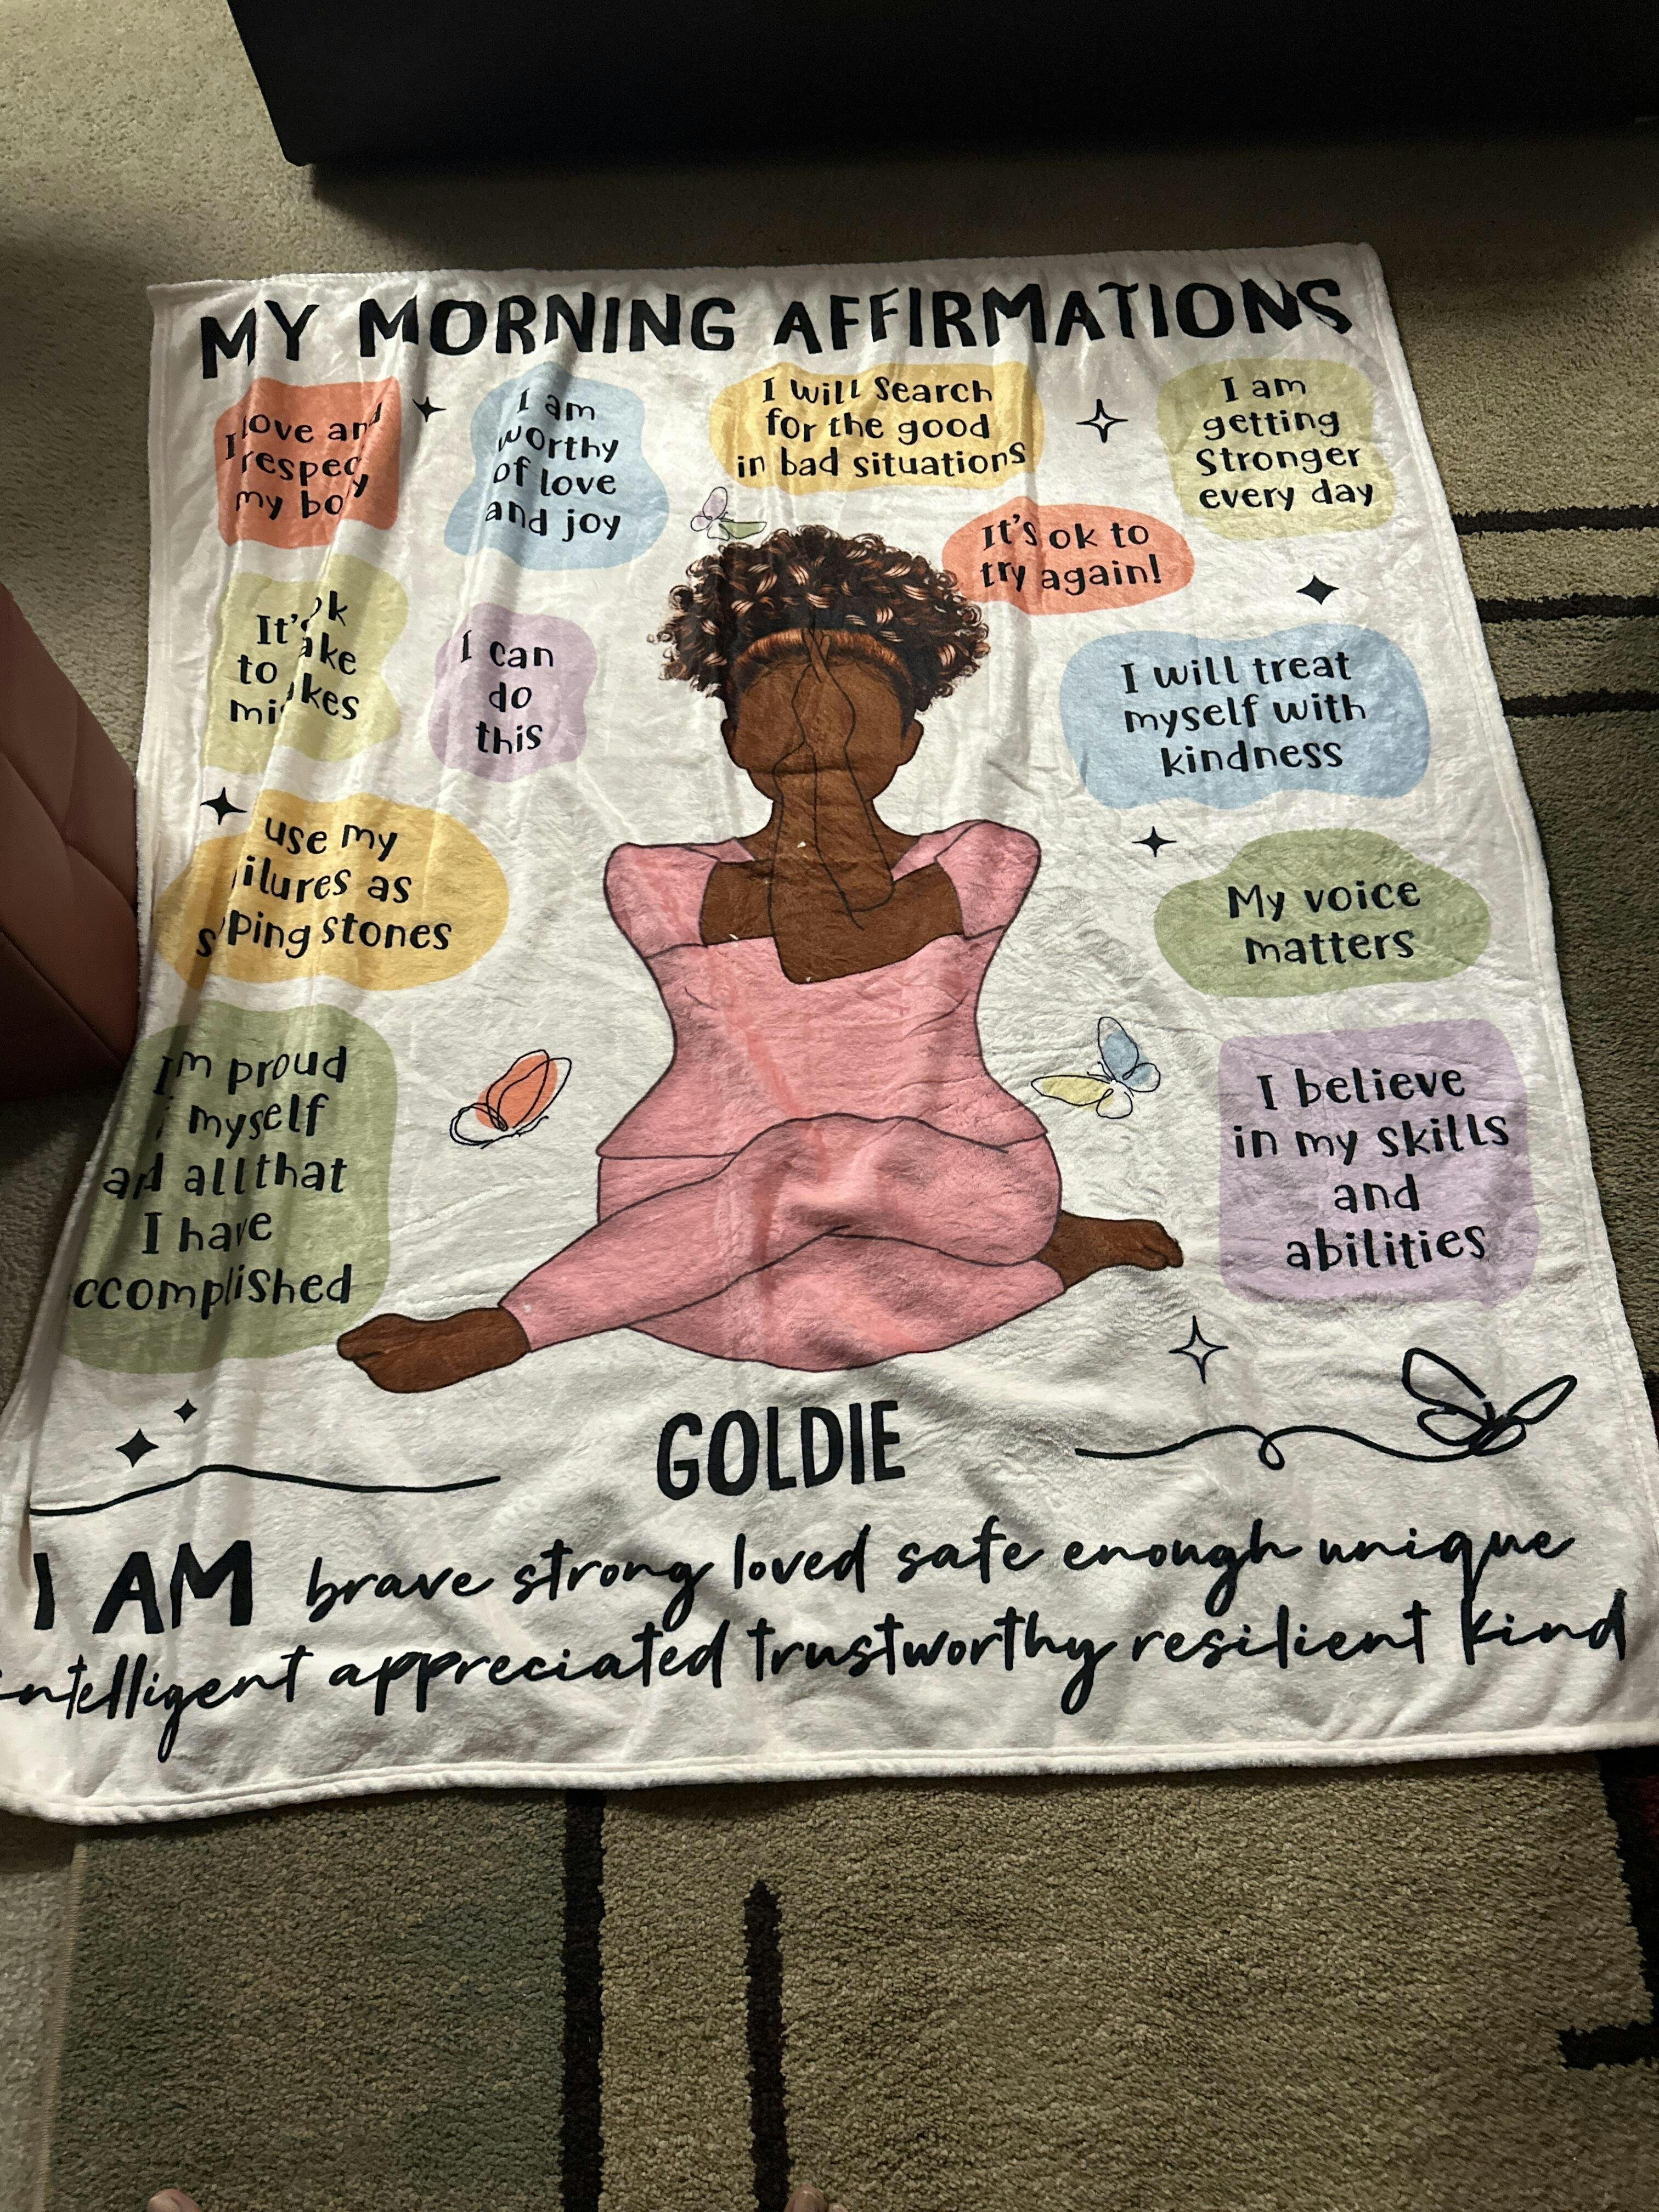 MY MORNING AFFIRMATIONS
I love and
respec
my bo
I am
worthy
of love
and joy
I will search
for the good
in bad situations
I am
getting
Stronger
every day
It's ok to
try again!
It's ok
to ake
mi kes
I can
do
this
I will treat
myself with
kindness
use my
ilures as
s ping stones
My voice
matters
I'm proud
myself
and all that
I have
ccomplished
I believe
in my skills
and
abilities
GOLDIE
I AM brave strong loved safe enough unique
intelligent appreciated trustworthy resilient kind